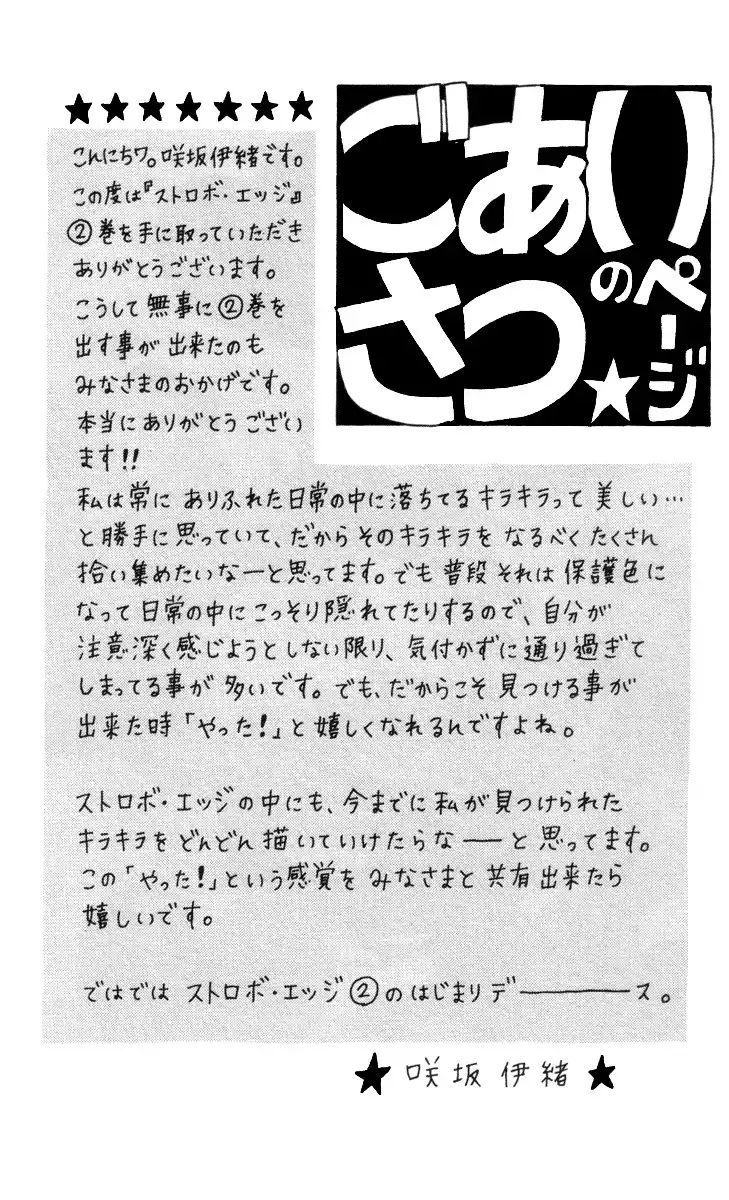 ごあいさつのページ
こんにちワ。咲坂伊緒です。
この度は『ストロボ・エッジ』
②巻を手に取っていただき
ありがとうございます。
こうして無事に②巻を
出す事が出来たのも
みなさまのおかげです。
本当にありがとうござい
ます!!
私は常にありふれた日常の中に落ちてるキラキラって美しい…
と勝手に思っていて、だからそのキラキラをなるべくたくさん
拾い集めたいなーと思ってます。でも普段それは保護色に
なって日常の中にこっそり隠れてたりするので、自分が
注意深く感じようとしない限り、気付かずに通り過ぎて
しまってる事が多いです。でも、だからこそ見つける事が
出来た時「やった!」と嬉しくなれるんですよね。
ストロボ・エッジの中にも、今までに私が見つけられた
キラキラをどんどん描いていけたらな──と思ってます。
この「やった!」という感覚をみなさまと共有出来たら
嬉しいです。
ではでは ストロボ・エッジ②のはじまりデ────ス。
★咲坂伊緒★